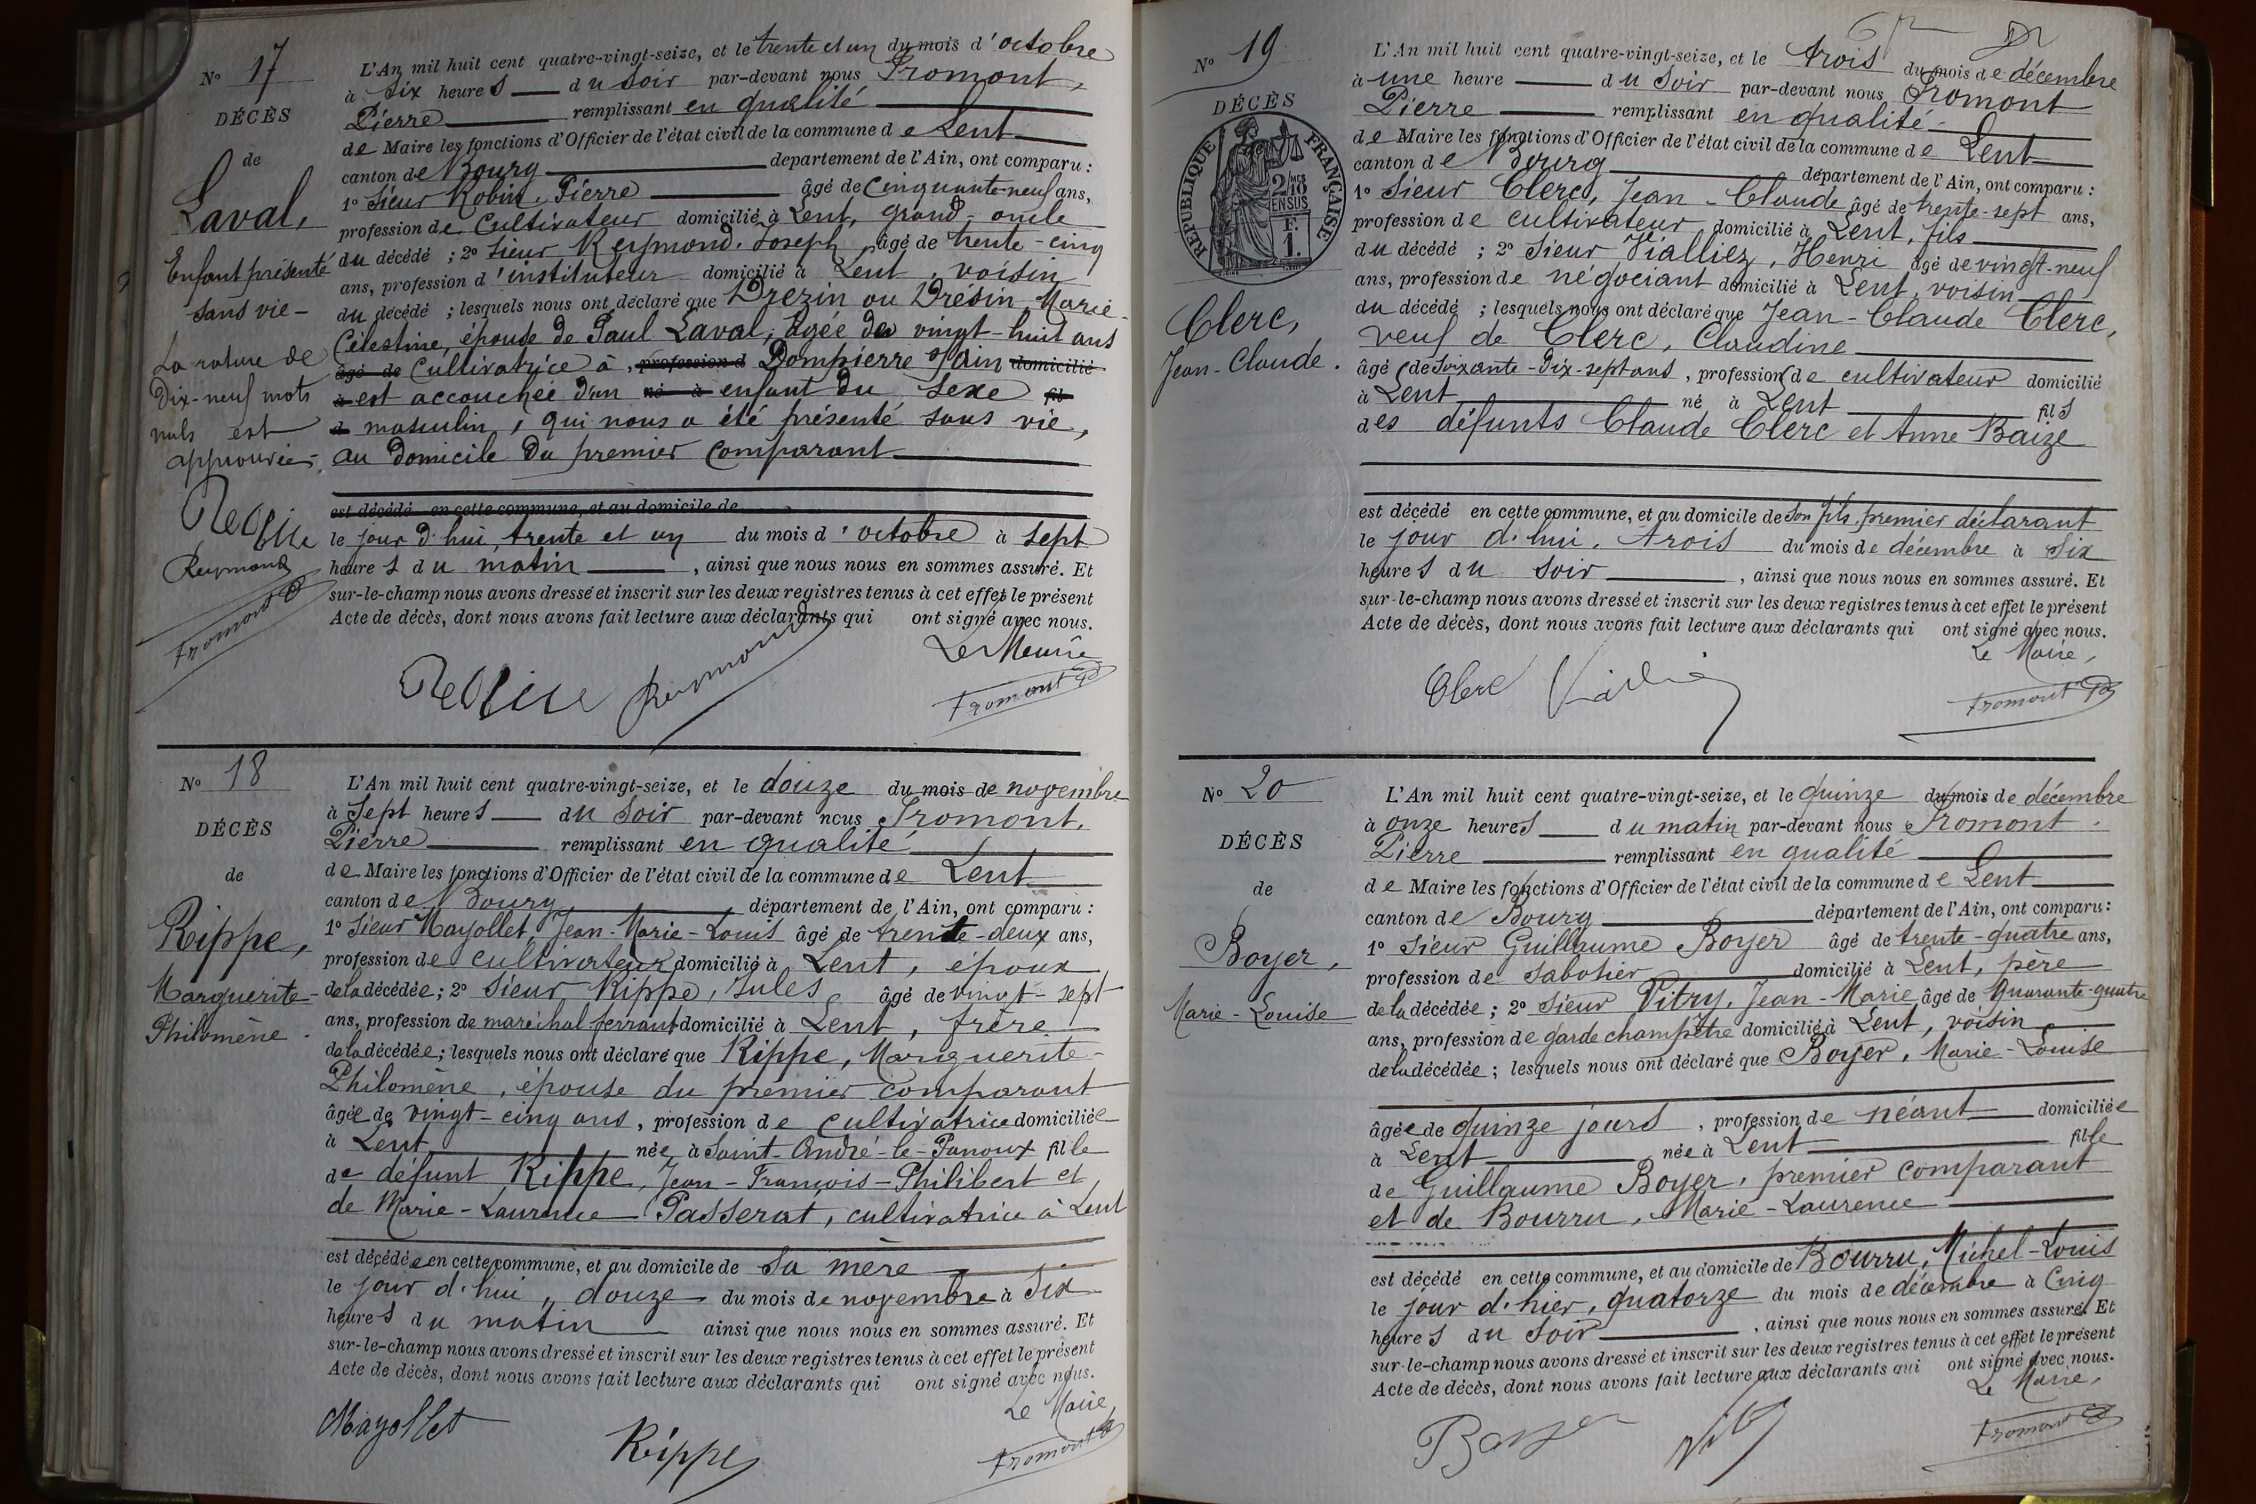 N° 17
DÉCÈS
de
Laval,
Enfant présenté
sans vie -
La rature de
Dix-neuf mots
nuls est
approuvée.
Reymond
Fromont P
L'An mil huit cent quatre-vingt-seize, et le trente et un du mois d'octobre
à six heures du soir par-devant nous Fromont,
Pierre remplissant en qualité
de Maire les fonctions d'Officier de l'état civil de la commune de Lent
canton de Bourg département de l'Ain, ont comparu :
1° Sieur Robin, Pierre âgé de cinquante-neuf ans,
profession de Cultivateur domicilié à Lent, grand-oncle
du décédé ; 2° Sieur Reymond, Joseph âgé de trente-cinq
ans, profession d'instituteur domicilié à Lent, voisin
du décédé ; lesquels nous ont déclaré que Drezin ou Drésin Marie-
Célestine, épouse de Paul Laval, âgée de vingt-huit ans
âgé de Cultivatrice à , profession d Dompierre s/ Ain domicilié
à est accouchée d'un né à enfant du sexe fil
d masculin, qui nous a été présenté sans vie,
au domicile du premier comparant
est décédé en cette commune, et au domicile de
le jour d'hui, trente et un du mois d'octobre à sept
heures du matin , ainsi que nous nous en sommes assuré. Et
sur-le-champ nous avons dressé et inscrit sur les deux registres tenus à cet effet le présent
Acte de décès, dont nous avons fait lecture aux déclarants qui ont signé avec nous.
Le Maire
Reymond
Fromont P
N° 18
DÉCÈS
de
Rippe,
Marguerite-
Philomène.
L'An mil huit cent quatre-vingt-seize, et le douze du mois de novembre
à Sept heures du soir par-devant nous Fromont,
Pierre remplissant en qualité
de Maire les fonctions d'Officier de l'état civil de la commune de Lent
canton de Bourg département de l'Ain, ont comparu :
1° Sieur Mayollet, Jean-Marie-Louis âgé de trente-deux ans,
profession de cultivateur domicilié à Lent, époux
de la décédée ; 2° Sieur Rippe, Jules âgé de vingt-sept
ans, profession de maréchal ferrant domicilié à Lent, frère
de la décédée ; lesquels nous ont déclaré que Rippe, Marguerite-
Philomène, épouse du premier comparant
âgée de vingt-cinq ans, profession de cultivatrice domiciliée
à Lent née à Saint-André-le-Panoux fille
de défunt Rippe, Jean-François-Philibert et
de Marie-Laurence Passerat, cultivatrice à Lent
est décédée en cette commune, et au domicile de sa mère
le jour d'hui, douze du mois de novembre à six
heures du matin ainsi que nous nous en sommes assuré. Et
sur-le-champ nous avons dressé et inscrit sur les deux registres tenus à cet effet le présent
Acte de décès, dont nous avons fait lecture aux déclarants qui ont signé avec nous.
Le Maire
Mayollet
Rippe
Fromont P
N° 19
DÉCÈS
RÉPUBLIQUE FRANÇAISE
2/10 EN SUS
F.
1.
Clerc,
Jean-Claude.
L'An mil huit cent quatre-vingt-seize, et le trois du mois de décembre
à une heure du soir par-devant nous Fromont
Pierre remplissant en qualité
de Maire les fonctions d'Officier de l'état civil de la commune de Lent
canton de Bourg département de l'Ain, ont comparu :
1° Sieur Clerc, Jean-Claude âgé de trente-sept ans,
profession de cultivateur domicilié à Lent, fils
du décédé ; 2° Sieur Vialliez, Henri âgé de vingt-neuf
ans, profession de négociant domicilié à Lent, voisin
du décédé ; lesquels nous ont déclaré que Jean-Claude Clerc,
veuf de Clerc, Claudine
âgé de soixante-dix-sept ans, profession de cultivateur domicilié
à Lent né à Lent fils
des défunts Claude Clerc et Anne Baize
est décédé en cette commune, et au domicile de son fils, premier déclarant
le jour d'hui, trois du mois de décembre à six
heures du soir , ainsi que nous nous en sommes assuré. Et
sur-le-champ nous avons dressé et inscrit sur les deux registres tenus à cet effet le présent
Acte de décès, dont nous avons fait lecture aux déclarants qui ont signé avec nous.
Le Maire,
Clerc
Fromont P
N° 20
DÉCÈS
de
Boyer,
Marie-Louise
L'An mil huit cent quatre-vingt-seize, et le quinze du mois de décembre
à onze heures du matin par-devant nous Fromont.
Pierre remplissant en qualité
de Maire les fonctions d'Officier de l'état civil de la commune de Lent
canton de Bourg département de l'Ain, ont comparu :
1° Sieur Guillaume Boyer âgé de trente-quatre ans,
profession de sabotier domicilié à Lent, père
de la décédée ; 2° Sieur Vitry, Jean-Marie âgé de Quarante-quatre
ans, profession de garde champêtre domicilié à Lent, voisin
de la décédée ; lesquels nous ont déclaré que Boyer, Marie-Louise
âgée de quinze jours, profession de néant domiciliée
à Lent née à Lent fille
de Guillaume Boyer, premier comparant
et de Bourru, Marie-Laurence
est décédé en cette commune, et au domicile de Bourru, Michel-Louis
le jour d'hier, quatorze du mois de décembre à cinq
heures du soir , ainsi que nous nous en sommes assuré. Et
sur-le-champ nous avons dressé et inscrit sur les deux registres tenus à cet effet le présent
Acte de décès, dont nous avons fait lecture aux déclarants qui ont signé avec nous.
Le Maire,
Boyer
Fromont P